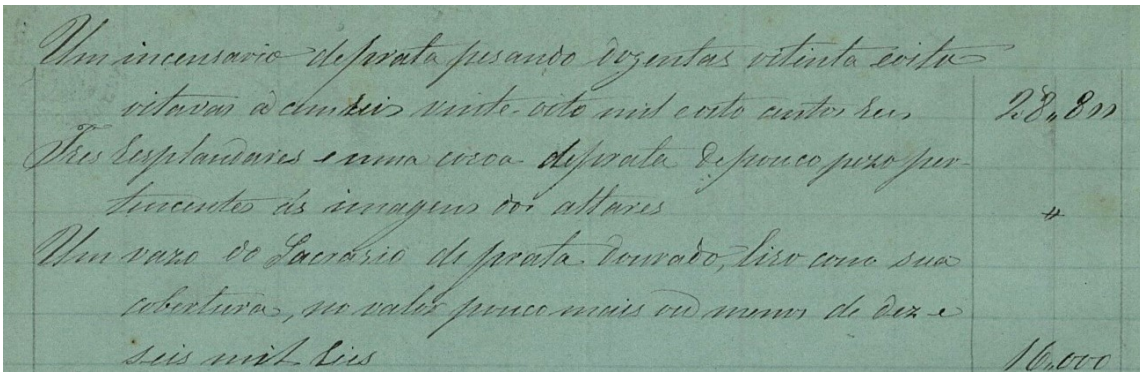 Um incensario de prata pesando dozentas oitenta e oito
oitavas a cem reis vinte-oito mil e oito centos reis 28,,800
Tres Resplandares e uma coroa de prata de pouco pezo per-
tencentes ás imagens dos altares "
Um vazo do Sacrario de prata dourado, lizo com sua
cobertura, no valor pouco mais ou menos de dez e
seis mil Reis 16,000